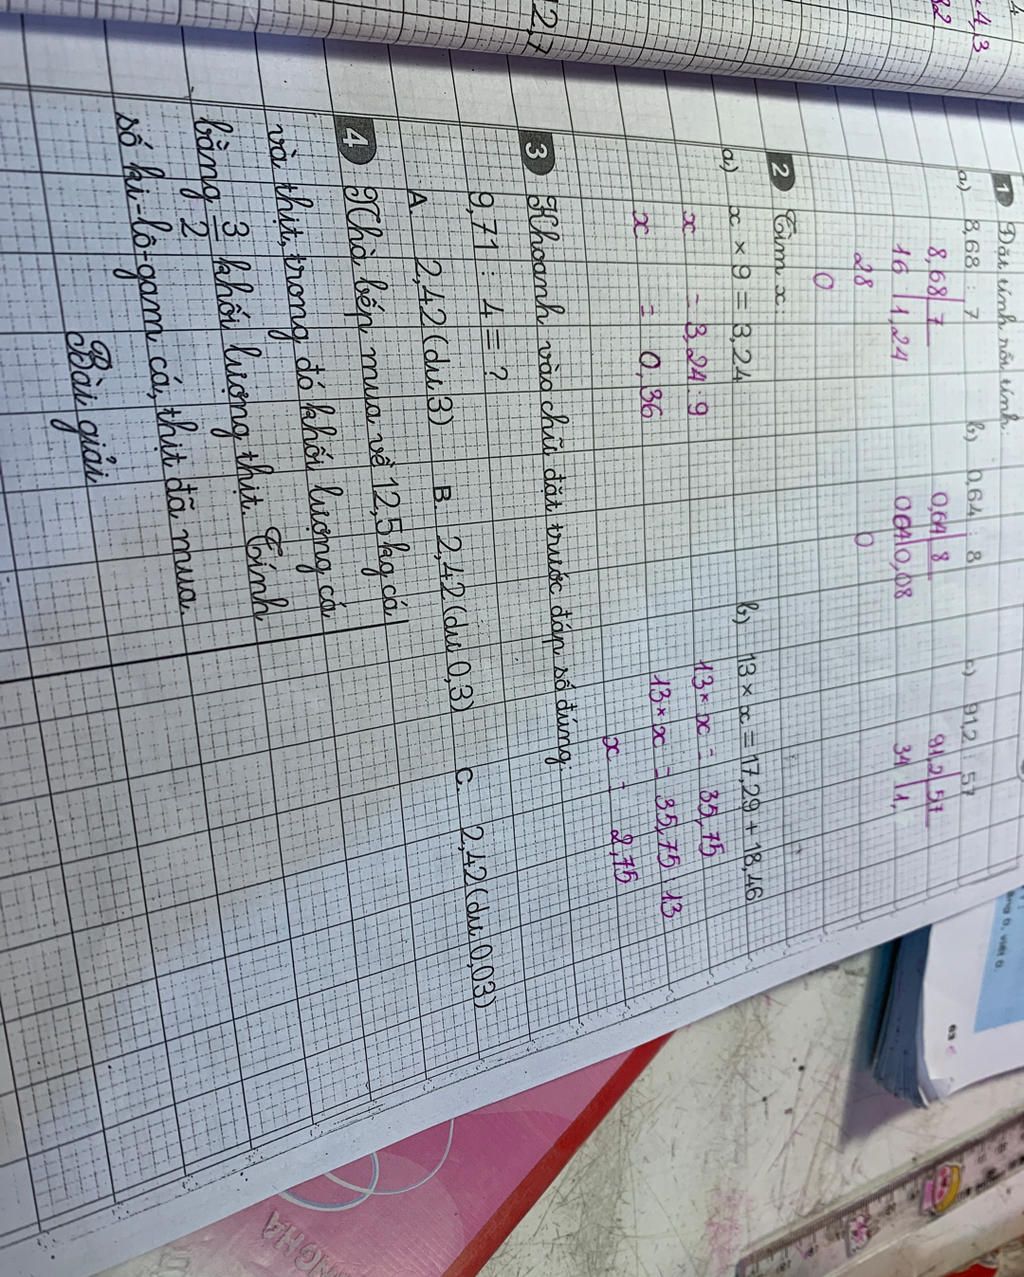 1 Đặt tính rồi tính.
a) 8,68 : 7 b) 0,64 : 8 c) 91,2 : 57
8,68 7 0,64 8 91,2 57
16 1,24 064 0,08 34 1,
28 0
0
2 Tìm x:
a) x × 9 = 3,24 b) 13 × x = 17,29 + 18,46
x = 3,24 : 9 13 × x = 35,75
x = 0,36 13 × x = 35,75 : 13
x = 2,75
3 Khoanh vào chữ đặt trước đáp số đúng:
9,71 : 4 = ?
A. 2,42 (dư 3) B. 2,42 (dư 0,3) C. 2,42 (dư 0,03)
4 Nhà bếp mua về 12,5 kg cá
và thịt, trong đó khối lượng cá
bằng 3/2 khối lượng thịt. Tính
số ki-lô-gam cá, thịt đã mua.
Bài giải
2,7
4,3